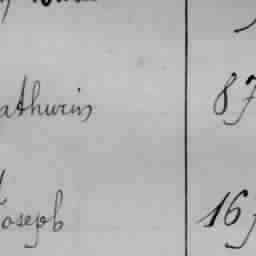 athurin 87
Joseph 16